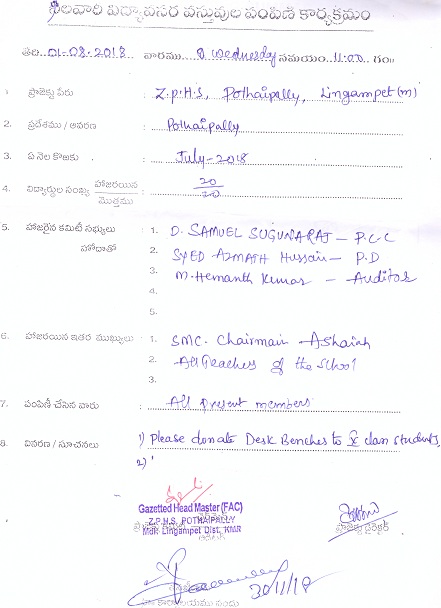 నెలవారి విద్యావసర వస్తువుల పంపిణి కార్యక్రమం
తేది. 01-08-2018 వారము Wednesday సమయం. 11:00 గం॥
1 ప్రాజెక్టు పేరు : Z.p.H.S, Pothaipally, Lingampet (m)
2. ప్రదేశము / ఆవరణ : Pothaipally
3. ఏ నెల కొఱకు : July-2018
4. విద్యార్థుల సంఖ్య హాజరయిన 20
మొత్తము 20
5. హాజరైన కమిటీ సభ్యులు : 1. D. SAMUEL SUGUNARAJ - P.C.C
హోదాతో 2. SYED AZMATH Hussain - P.D
3. M. Hemanth Kumar - Auditor
4.
5.
6. హాజరయిన ఇతర ముఖ్యులు : 1. SMC. Chairman - Ashaiah
2. All Teachers of the School
3.
7. పంపిణీ చేసిన వారు : All present members
8. వివరణ / సూచనలు 1) Please donate Desk Benches to X class students,
2)
Gazetted Head Master (FAC)
Z.P.H.S. POTHAIPALLY
Mdl: Lingampet Dist. KMR
ప్రాజెక్టు డైరెక్టర్
20/11/18